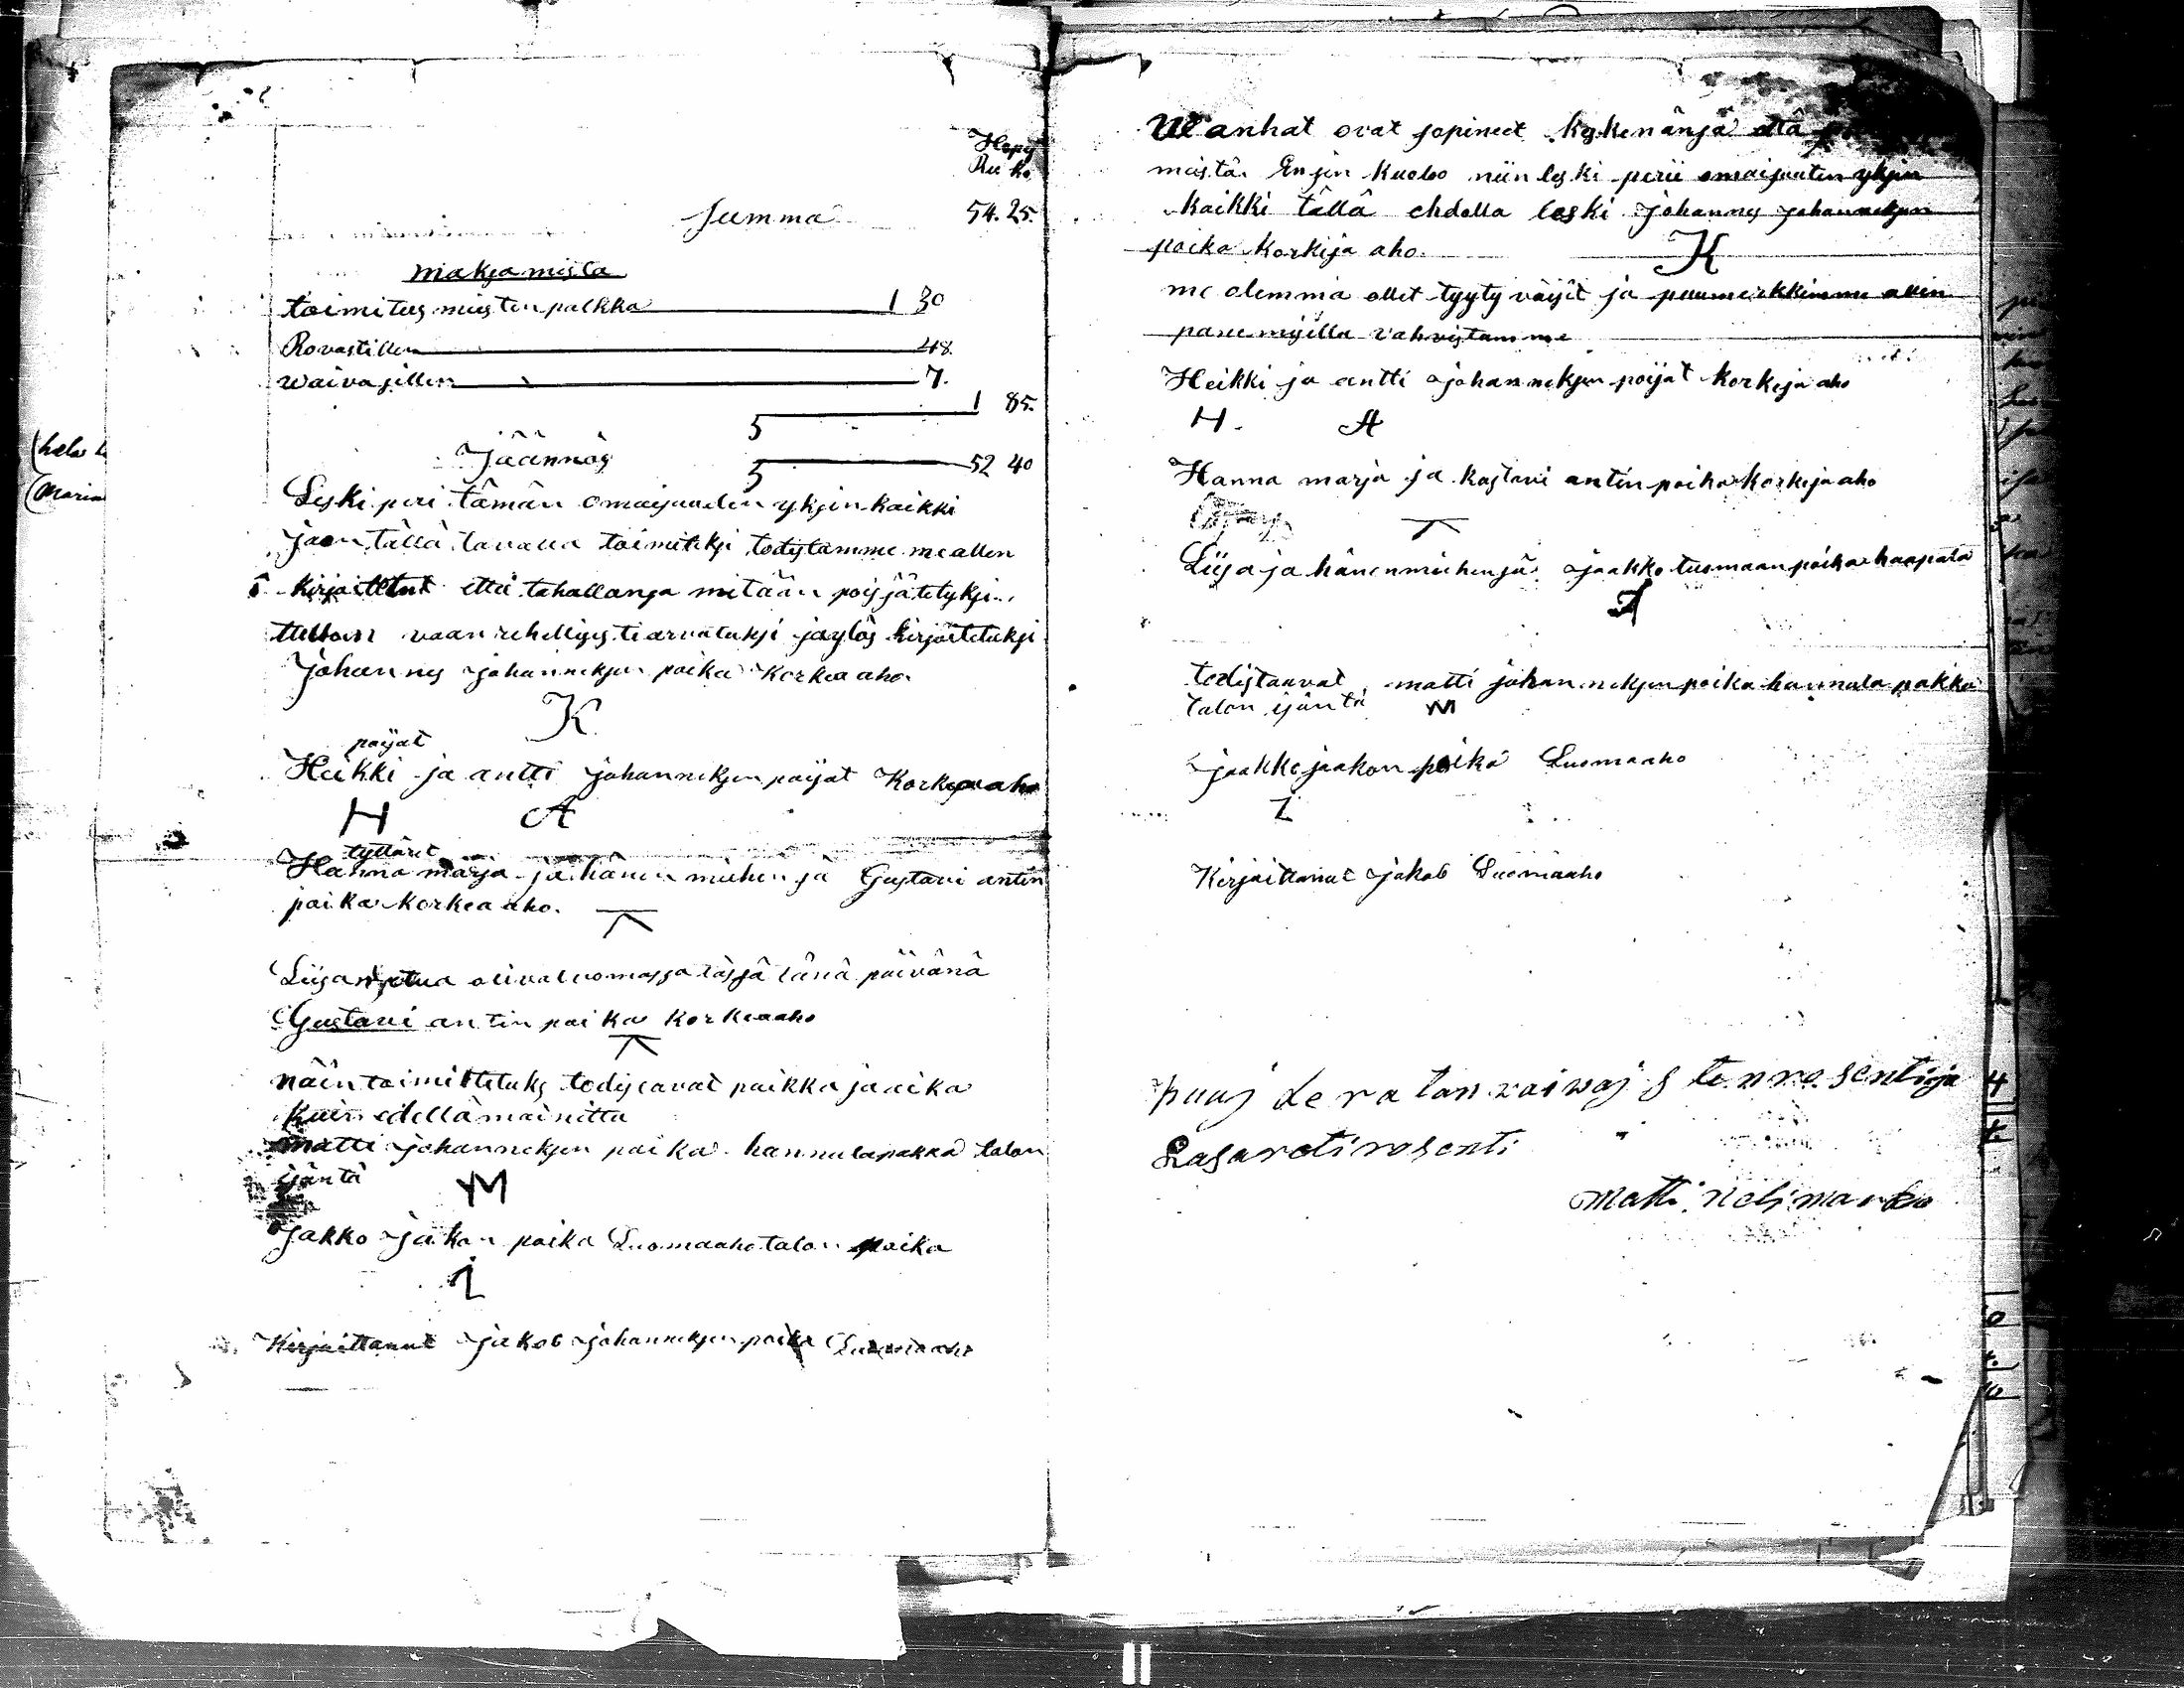 Hopy
Ru ko.
Summa 54. 25.
Maksamista
toimitus miesten palkka 1 30
Rovastillen 48.
Waivasillen 7.
1 85.
5
Jäännös 52 40
5
Leski peri tämän omaisuuden yksin kaikki
Jaon tällä tavalla toimiteksi todistamme me allen
kirjoittetut että tahallansa mitään pois jätetyksi
vaan rehellisesti arvatuksi ja ylös kirjoitetuksi
Johannes Johanneksen poika Korkea aho
K
pojat
Heikki ja antti Johanneksen pojat Korkeaaho
H A
tyttäret
Hanna marja ja hänen miehensä Gustavi antin
poika korkea aho.
Liisa olivat omassa tässä tänä päivänä
Gustavi antin poika Korkeaaho
näin toimitetuks todistavat paikka ja aika
kuin edellä mainittu
Matti Johanneksen poika hannula pakka talon
isäntä
M
Jakko Jakon poika Luomaaho talon poika
Kirjoittanut Jakob Johanneksen poika Luomaaho
(hela
(Maria
Wanhat ovat sopineet keskenänsä että
meistä. Ensin kuoloo niin leski perii omaisuuten yksin
kaikki tällä ehdolla leski Johannes Johanneksen
poika Korkija aho.
K
me olemma ollet tyytyväiset ja puumerkkimme allen
panemisilla vahvistamme
Heikki ja antti Johanneksen pojat korkeja aho
H. A
Hanna marja ja kustavi antin poika korkeja aho
Liisa ja hänen miehensä Jaakko tuomaan poika haapala
todistavat matti johanneksen poika hannula pakka
talon isäntä M
Jaakko jaakon poika Luomaaho
Kirjoittanut Jakob Luomaaho
Lasaretirosenti
Matti Nelimarkka